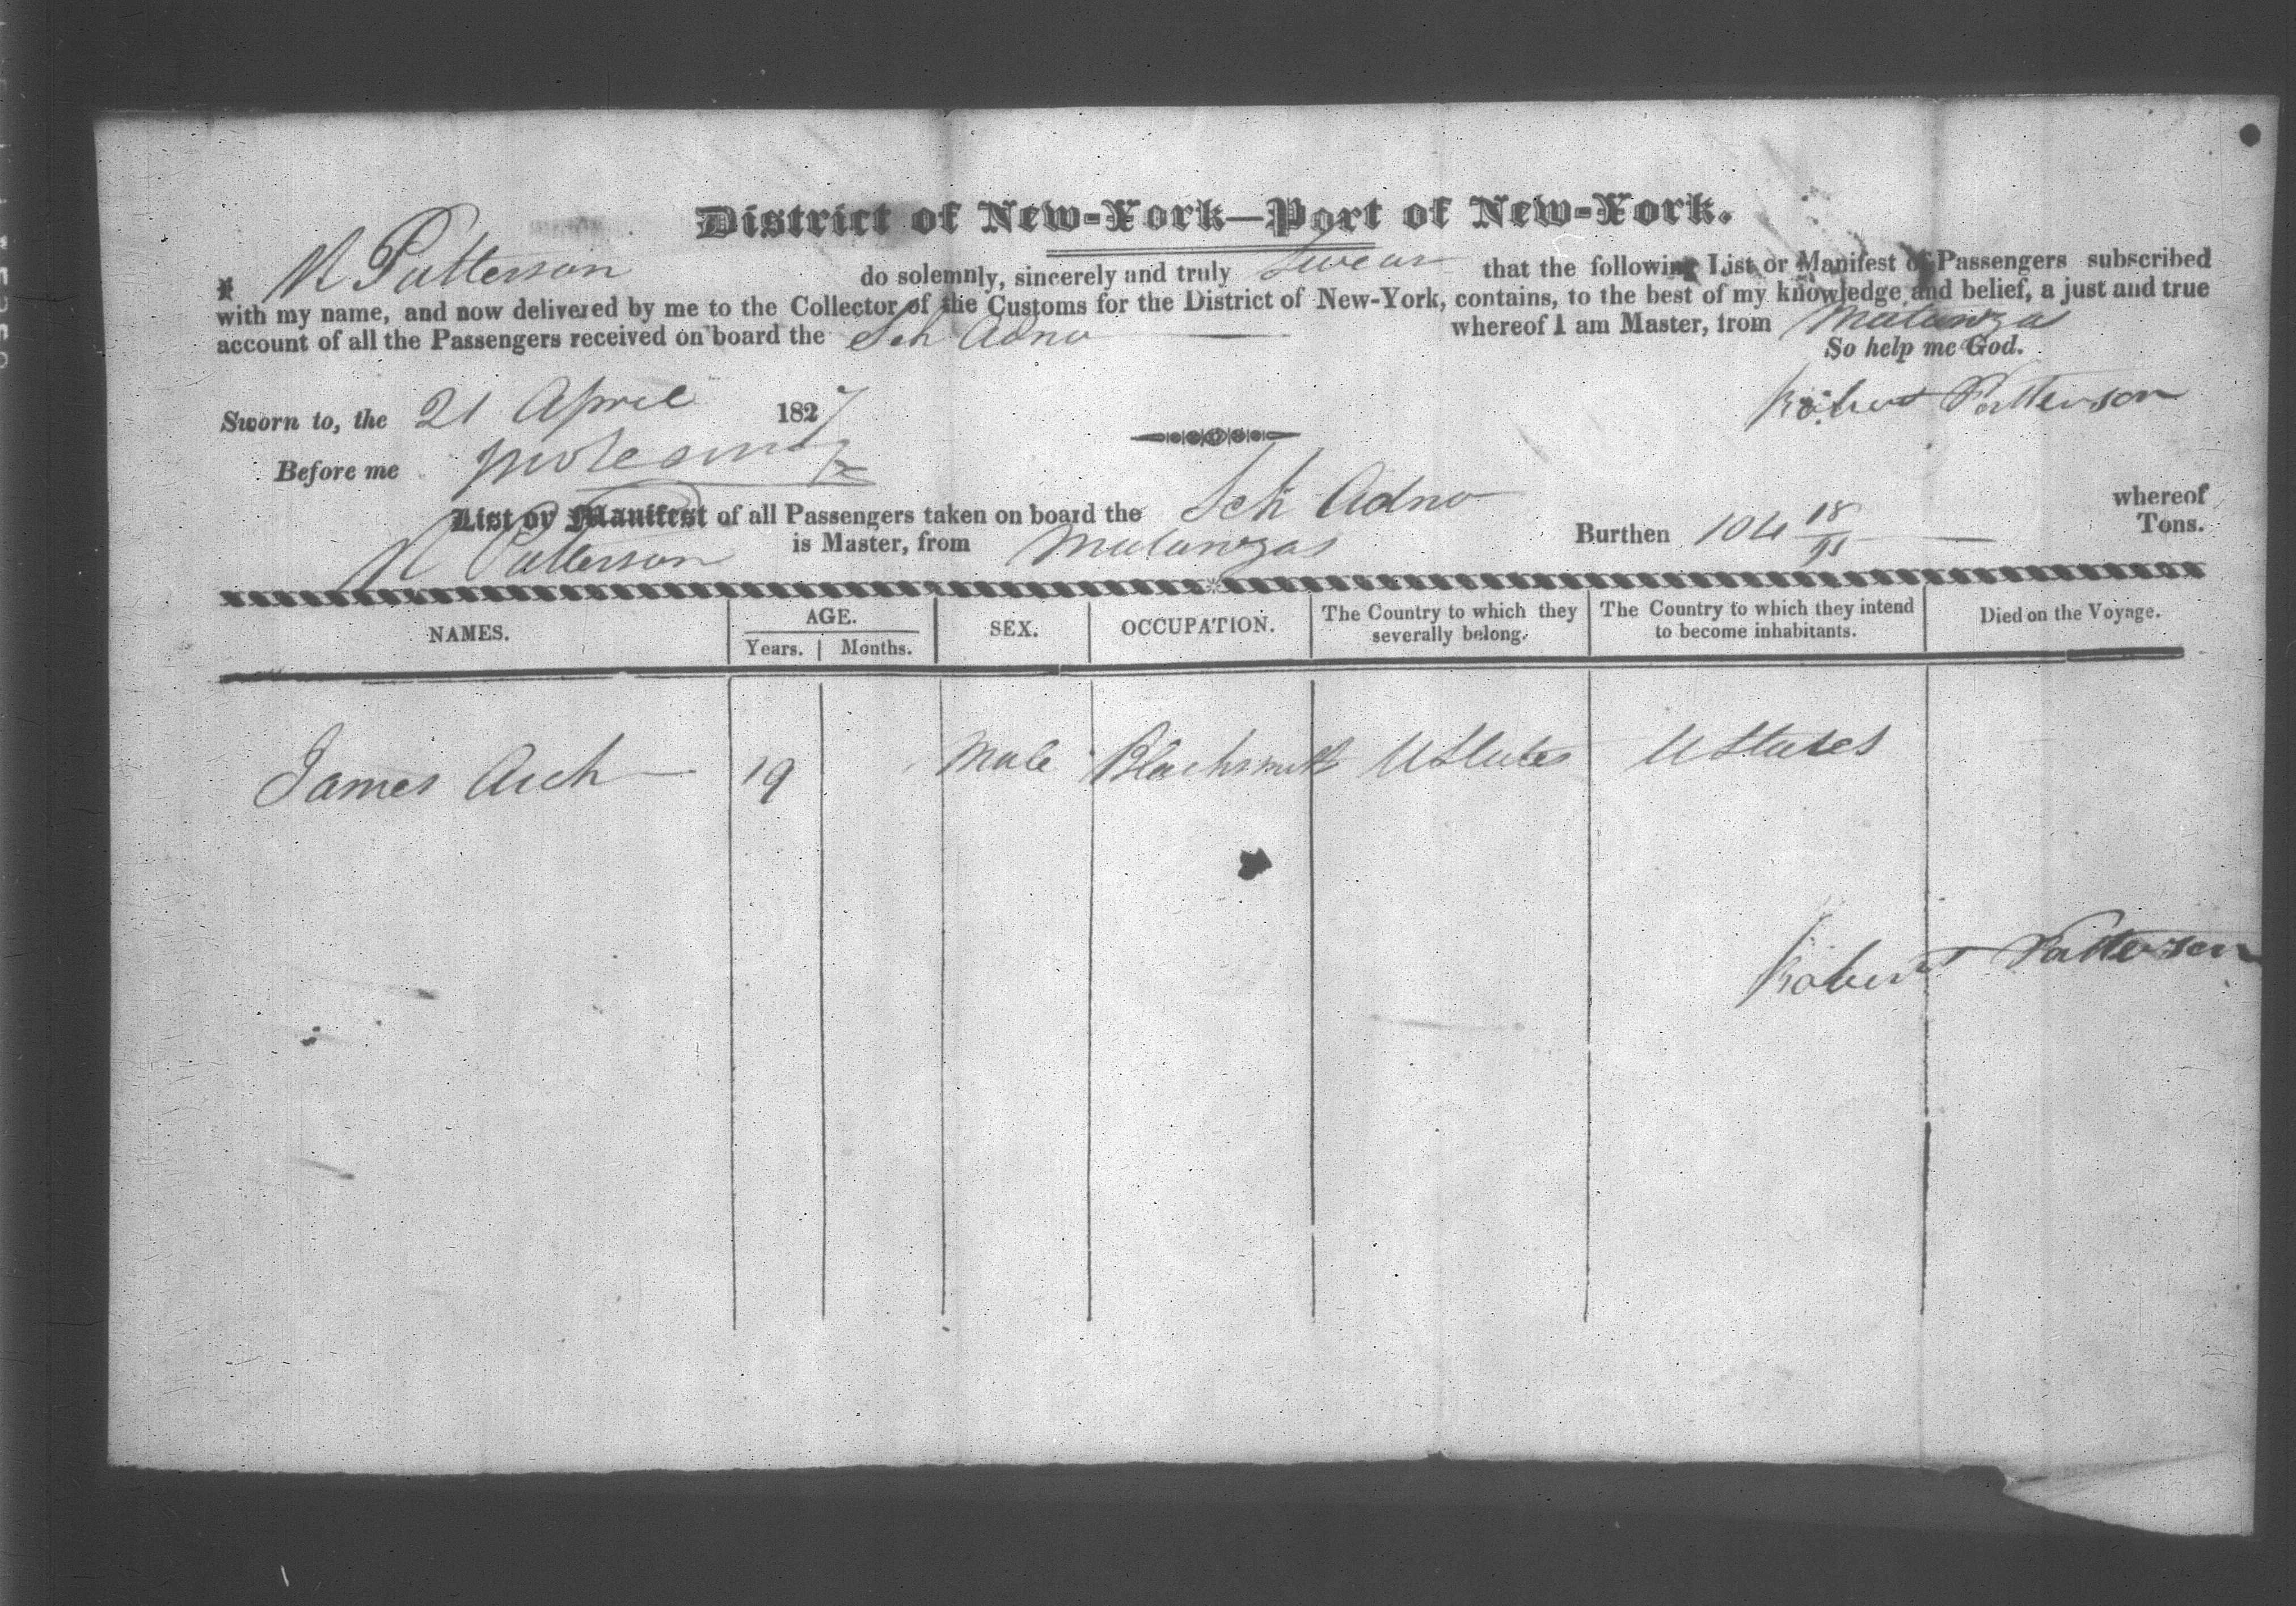 District of New-York—Port of New-York.
I R Patterson do solemnly, sincerely and truly Swear that the following List or Manifest of Passengers subscribed
with my name, and now delivered by me to the Collector of the Customs for the District of New-York, contains, to the best of my knowledge and belief, a just and true
account of all the Passengers received on board the Sch Adno whereof I am Master, from Matanzas
So help me God.
Sworn to, the 21 April 1827
Robert Patterson
Before me
List or Manifest of all Passengers taken on board the Sch Adno whereof
R Patterson is Master, from Matanzas Burthen 104 18/95 Tons.
NAMES. AGE. Years. Months. SEX. OCCUPATION. The Country to which they severally belong. The Country to which they intend to become inhabitants. Died on the Voyage.
James Arch 19 Male Blacksmith UStates UStates
Robert Patterson